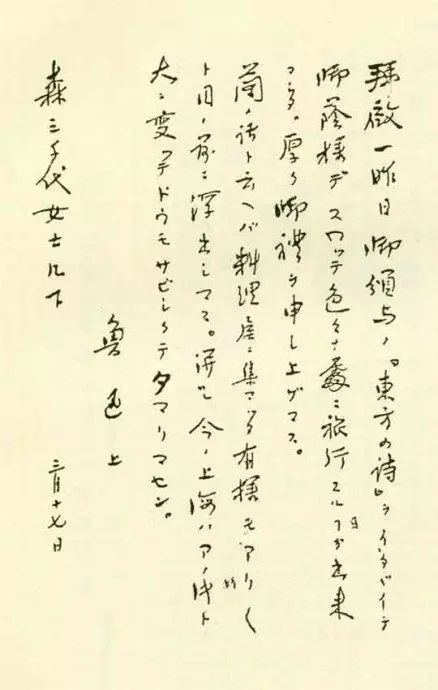 拜啓一昨日御頒与ノ『東方の詩』ヲイタダイテ
御蔭様デスワッテ色々ナ處ニ旅行スルヿガ出来
マシタ。厚ク御禮ヲ申し上ゲマス。
蘭ノ話ト云ヘバ料理屋ニ集マッタ有様モアリ〱
ト目ノ前ニ浮出シマス。併シ今ノ上海ハアノ時ト
大ニ変ッテドウモサビシクテタマリマセン。
魯迅 上
三月十七日
森三千代女士几下